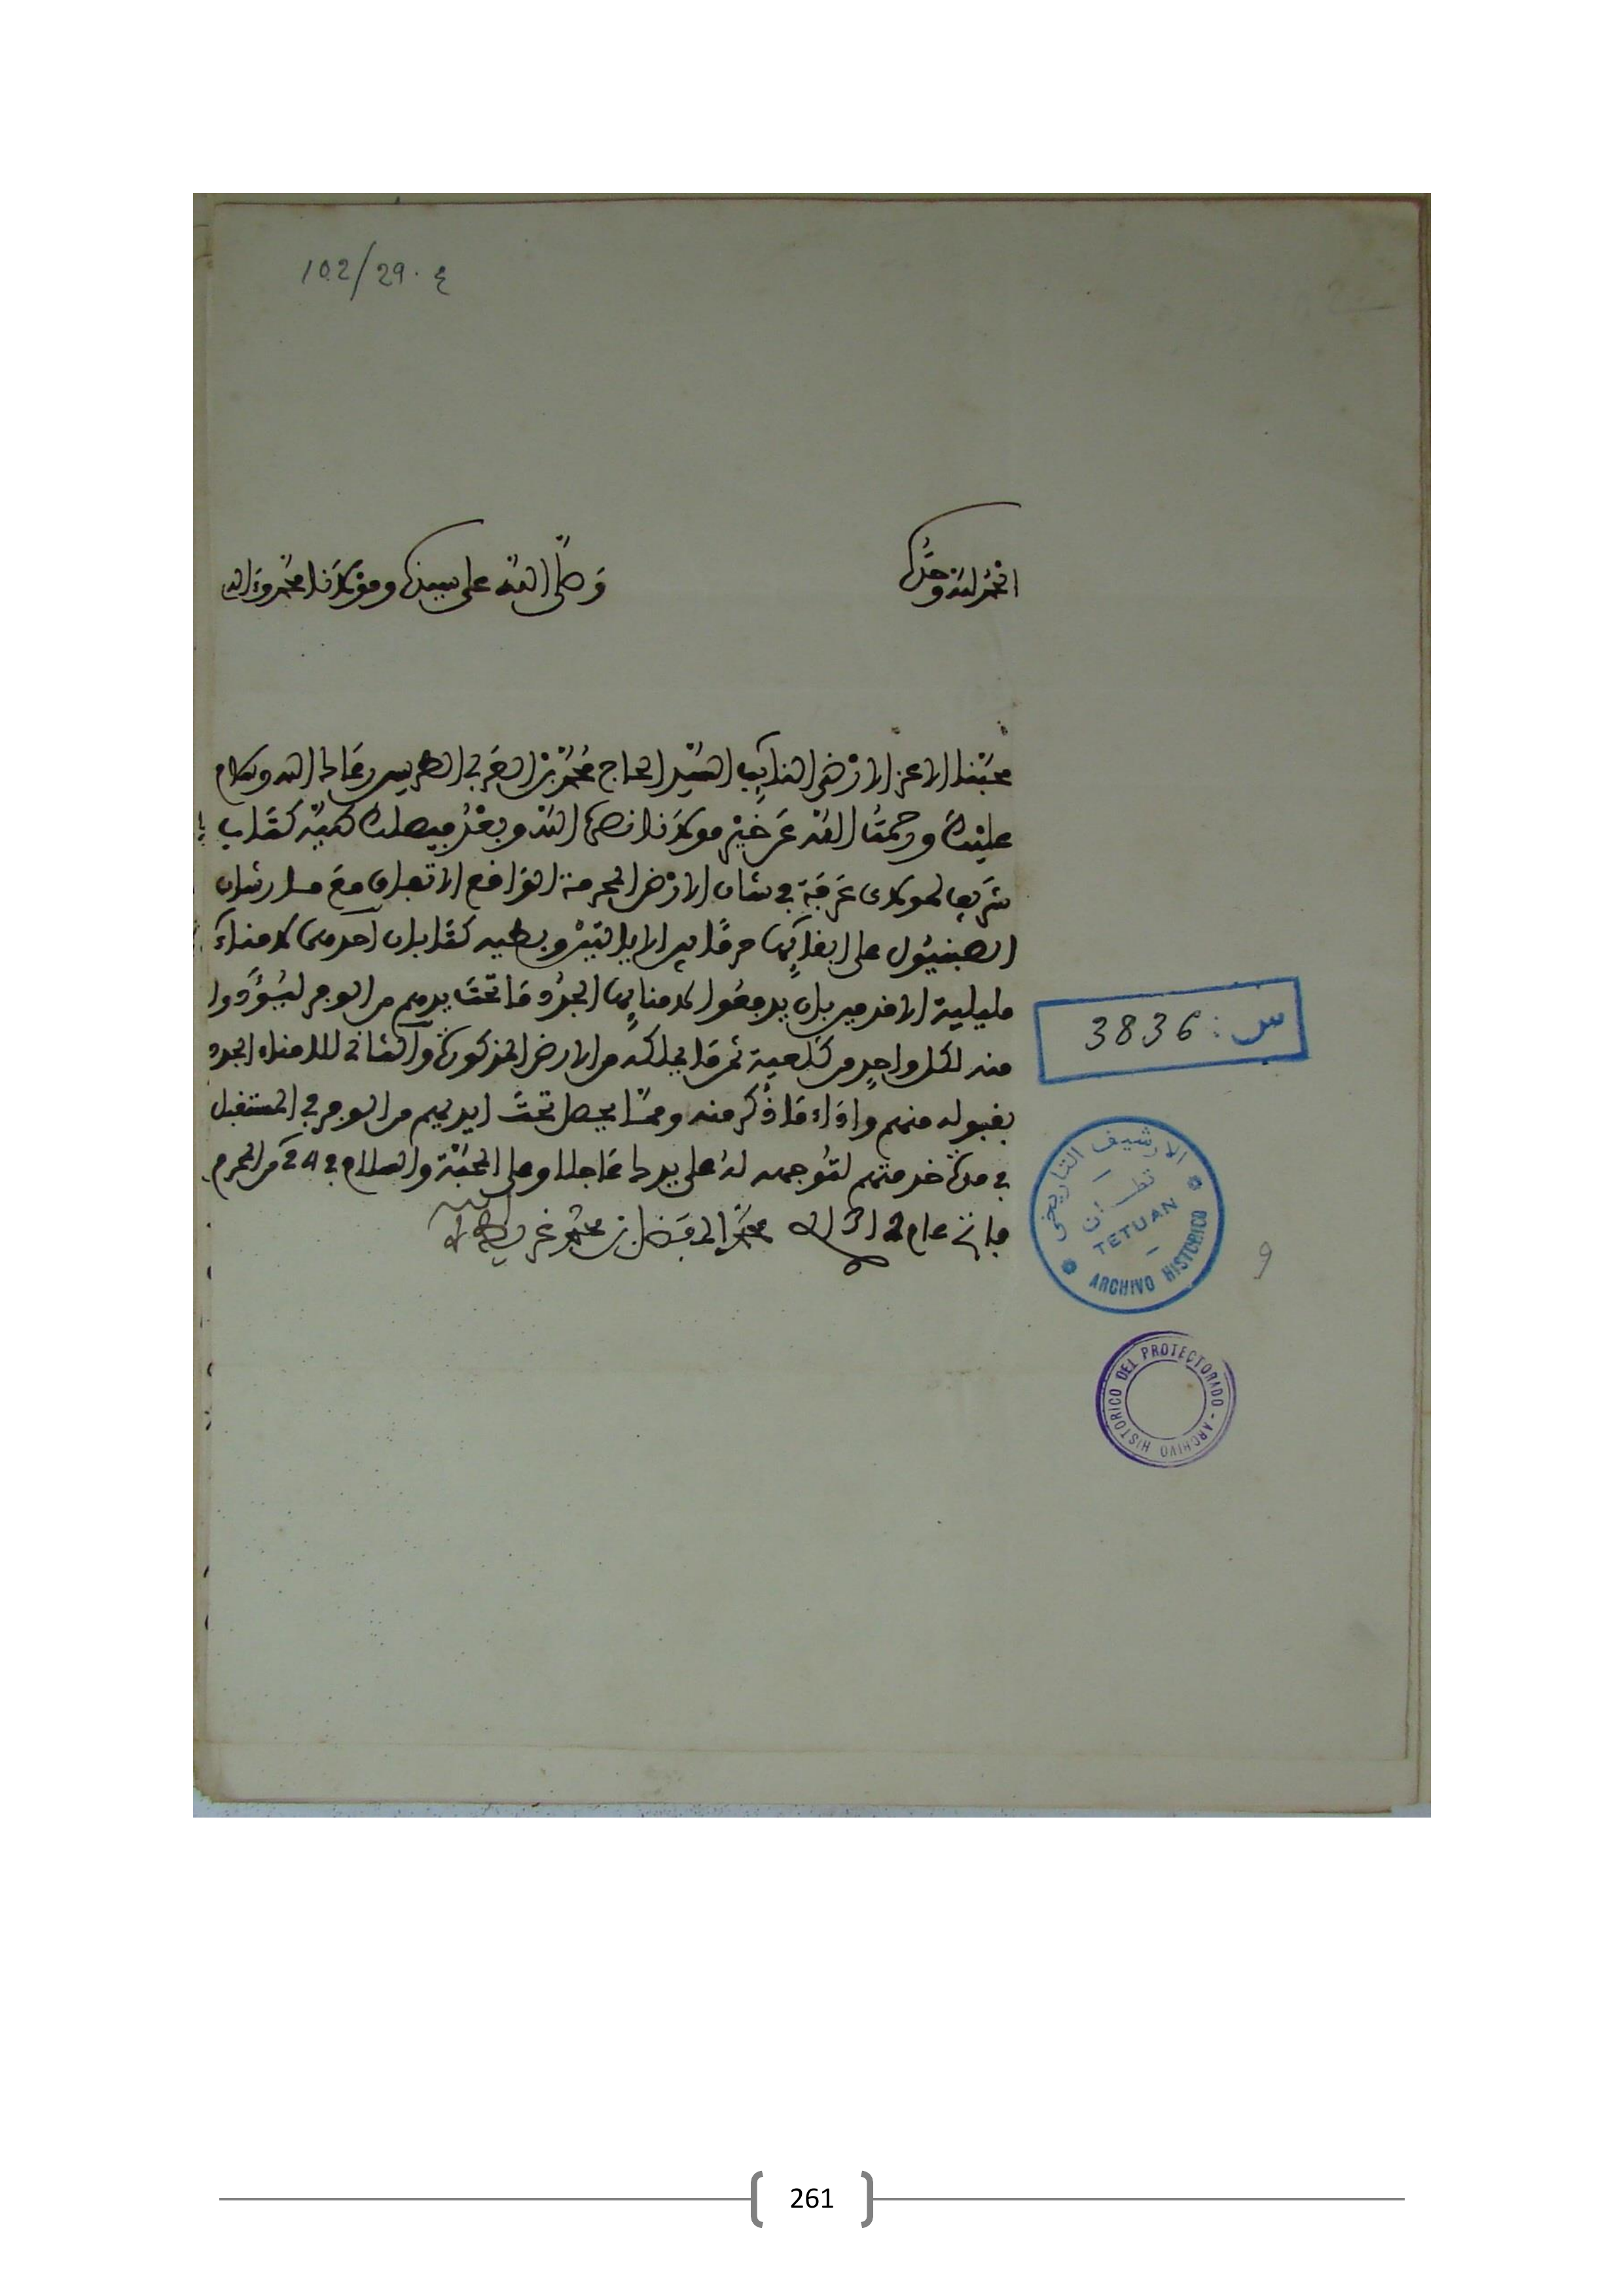 102/29. ع
الحمد لله وحده
وصلى الله على سيدنا ومولانا محمد وءاله
محبنا الاعز الارضى النايب السيد الحاج محمد بن العربي الطريس رعاك الله وسلام
عليك ورحمت الله عن خير مولانا نصره الله وبعد فيصلك طيه كتاب
شريف لمولاي عرفة في شان الارض المحرمة الواقع الاتفاق مع مارشان
الصبنيول على ابقايها حرما بين الايالتين وبطيه كتابان احدهما لامناء
مليلية الاقدمين بان يدفعوا لامنايها الجدد ما تحت يدهم من الوفر ليؤدوا
منه لكل واحد من كلعية ثمن ما يملكه من الارض المذكورة والثاني للامناء الجدد
بقبوله منهم واداء ما ذكر منه ومما يحصل تحت ايديهم من الوفر في المستقبل
في مدة خدمتهم لتوجهه له على يدك عاجلا وعلى المحبة والسلام في 24 من المحرم
فاتح عام 1312 محمد المفضل بن محمد غريط
س: 3836
الارشيف التاريخي
تطوان
TETUAN
ARCHIVO HISTORICO
9
ARCHIVO HISTORICO DEL PROTECTORADO
261